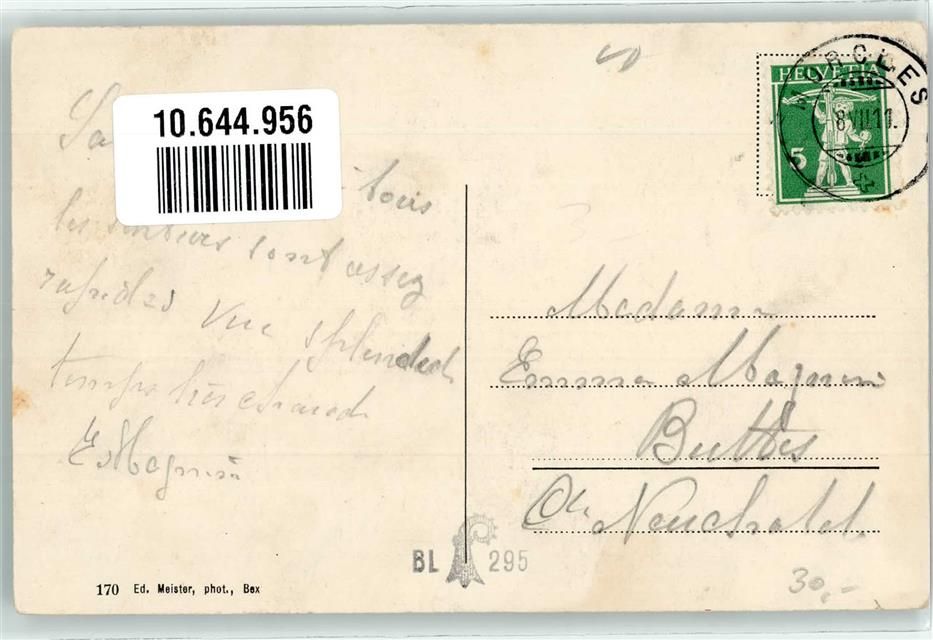 10.644.956
Sa
tous
les sentiers sont assez
rapides Vue splendid
temps très chaud
E Magnin
HELVETIA
5
MORCLES
8 VII 11
Madame
Emma Magnin
Buttes
Ctn Neuchatel
BL 295
30,-
170 Ed. Meister, phot., Bex